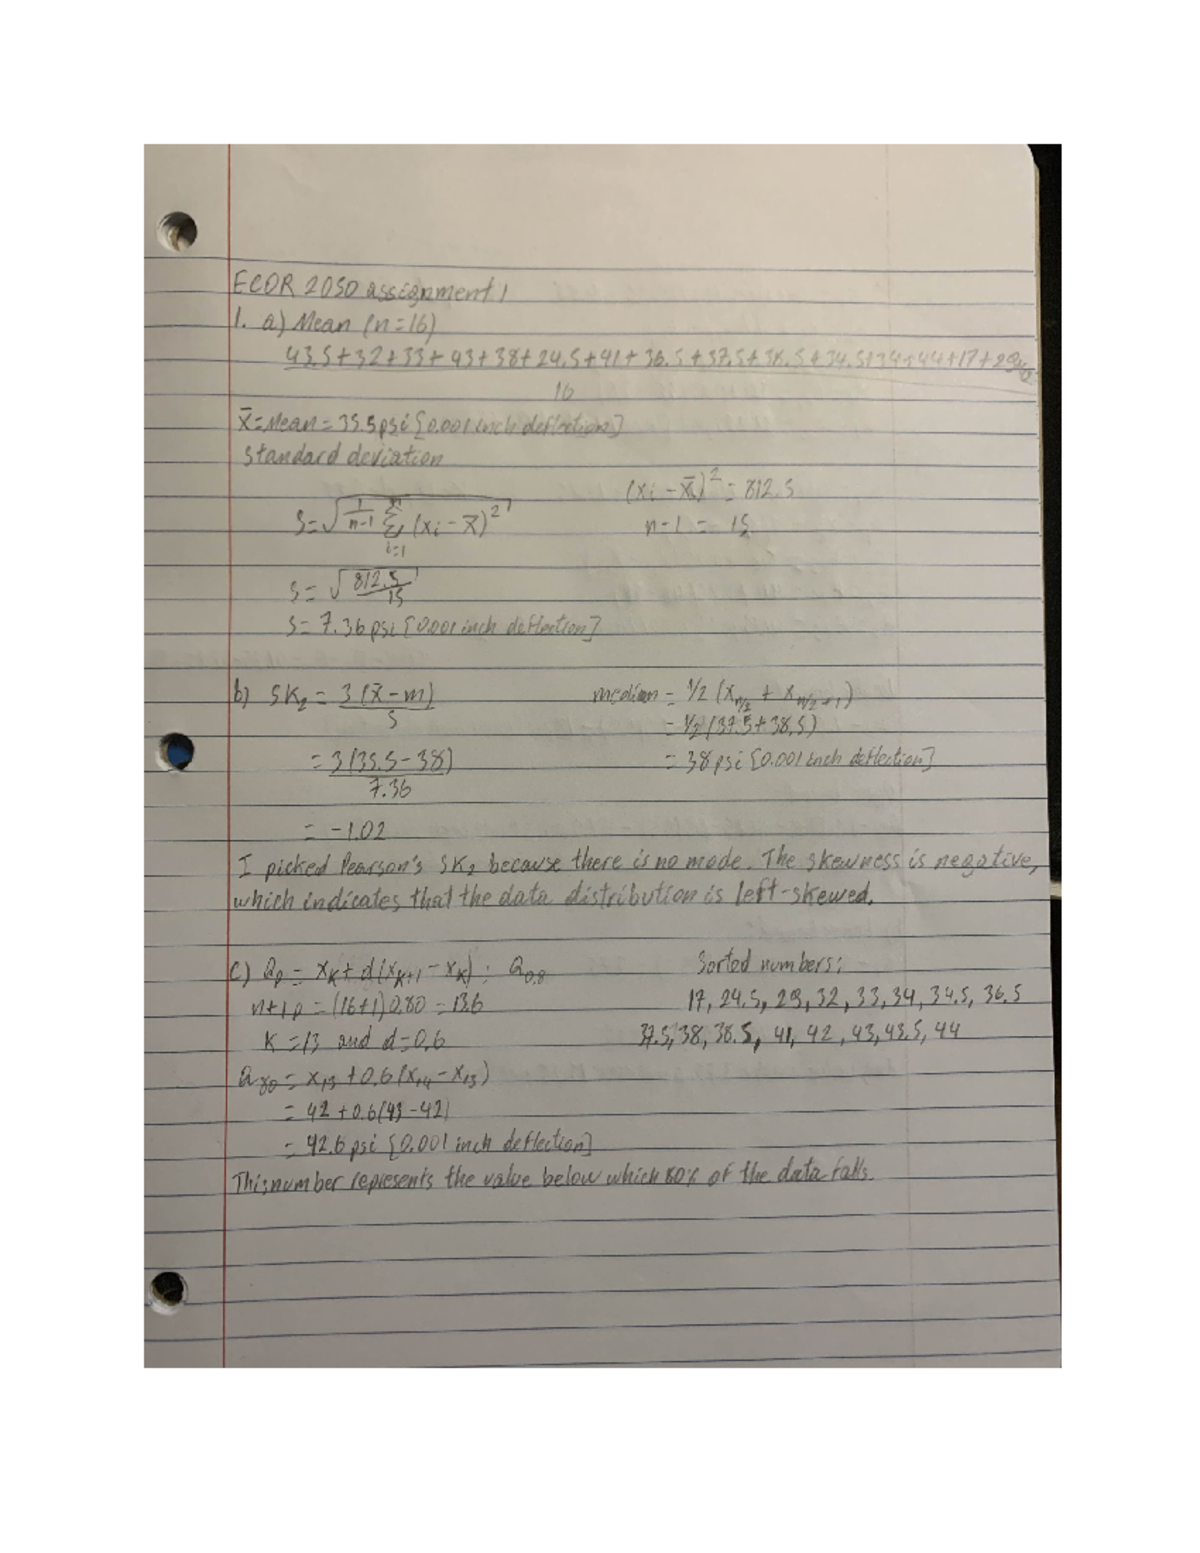 ECOR 2050 assignment 1
1. a) Mean (n=16)
43.5+32+33+43+38+24.5+41+36.5+37.5+38.5+34.5+34+44+17+29+42
16
x̄=Mean=35.5psi[0.001 inch deflection]
standard deviation
(xi - x̄)² = 812.5
S=√(1/(n-1) Σ_{i=1}^{n} (xi - x̄)²)
n-1 = 15
S= √(812.5/15)
S= 7.36psi[0.001 inch deflection]
b) SK₂ = 3(x̄-m)/S
median = 1/2 (x_{n/2} + x_{n/2+1})
= 1/2(37.5+38.5)
= 3(35.5-38)/7.36
= 38psi[0.001 inch deflection]
= -1.02
I picked Pearson's SK₂ because there is no mode. The skewness is negative,
which indicates that the data distribution is left-skewed.
c) Qp = x_K + d(x_{K+1} - x_K) : Q0.8
Sorted numbers:
n+1p = (16+1)0.80 = 13.6
17, 24.5, 29, 32, 33, 34, 34.5, 36.5
K = 13 and d=0.6
37.5, 38, 38.5, 41, 42, 43, 43.5, 44
Q80 = x₁₃ +0.6(x₁₄ - x₁₃)
= 42 +0.6(43-42)
= 42.6psi [0.001 inch deflection]
This number represents the value below which 80% of the data falls.